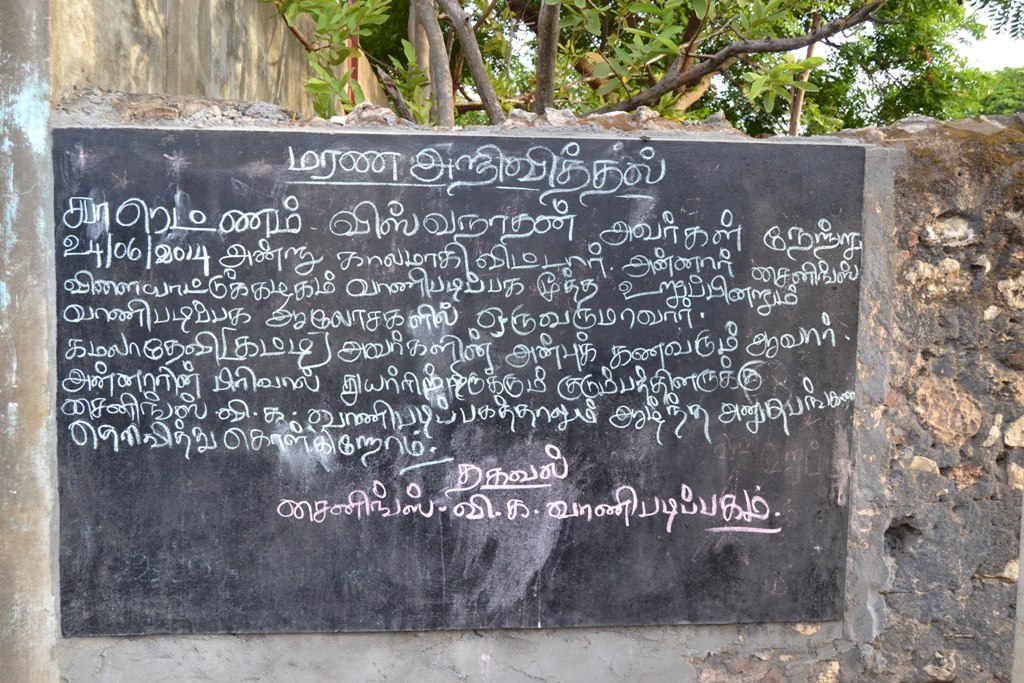 மரண அறிவித்தல்
காறெட்ணம் விஸ்வநாதன் அவர்கள் நேற்று
24/06/2014 அன்று காலமாகி விட்டார். அன்னார் சைனிங்ஸ்
விளையாட்டுக்கழகம் வாணிபடிப்பக மூத்த உறுப்பினறும்
வாணிபடிப்பக ஆலோசகளில் ஒருவருமாவார்.
கமலாதேவி(கட்டி) அவர்களின் அன்புக் கணவரும் ஆவார்.
அன்னாரின் பிரிவால் துயர்ருற்றிருக்கும் குடும்பத்தினருக்கு
சைனிங்ஸ் வி.க. வாணிபடிப்பகத்தாலும் ஆழ்ந்த அனுதாபங்களை
தெரிவித்து கொள்கின்றோம்.
தகவல்
சைனிங்ஸ்-வி.க.வாணிபடிப்பகம்.